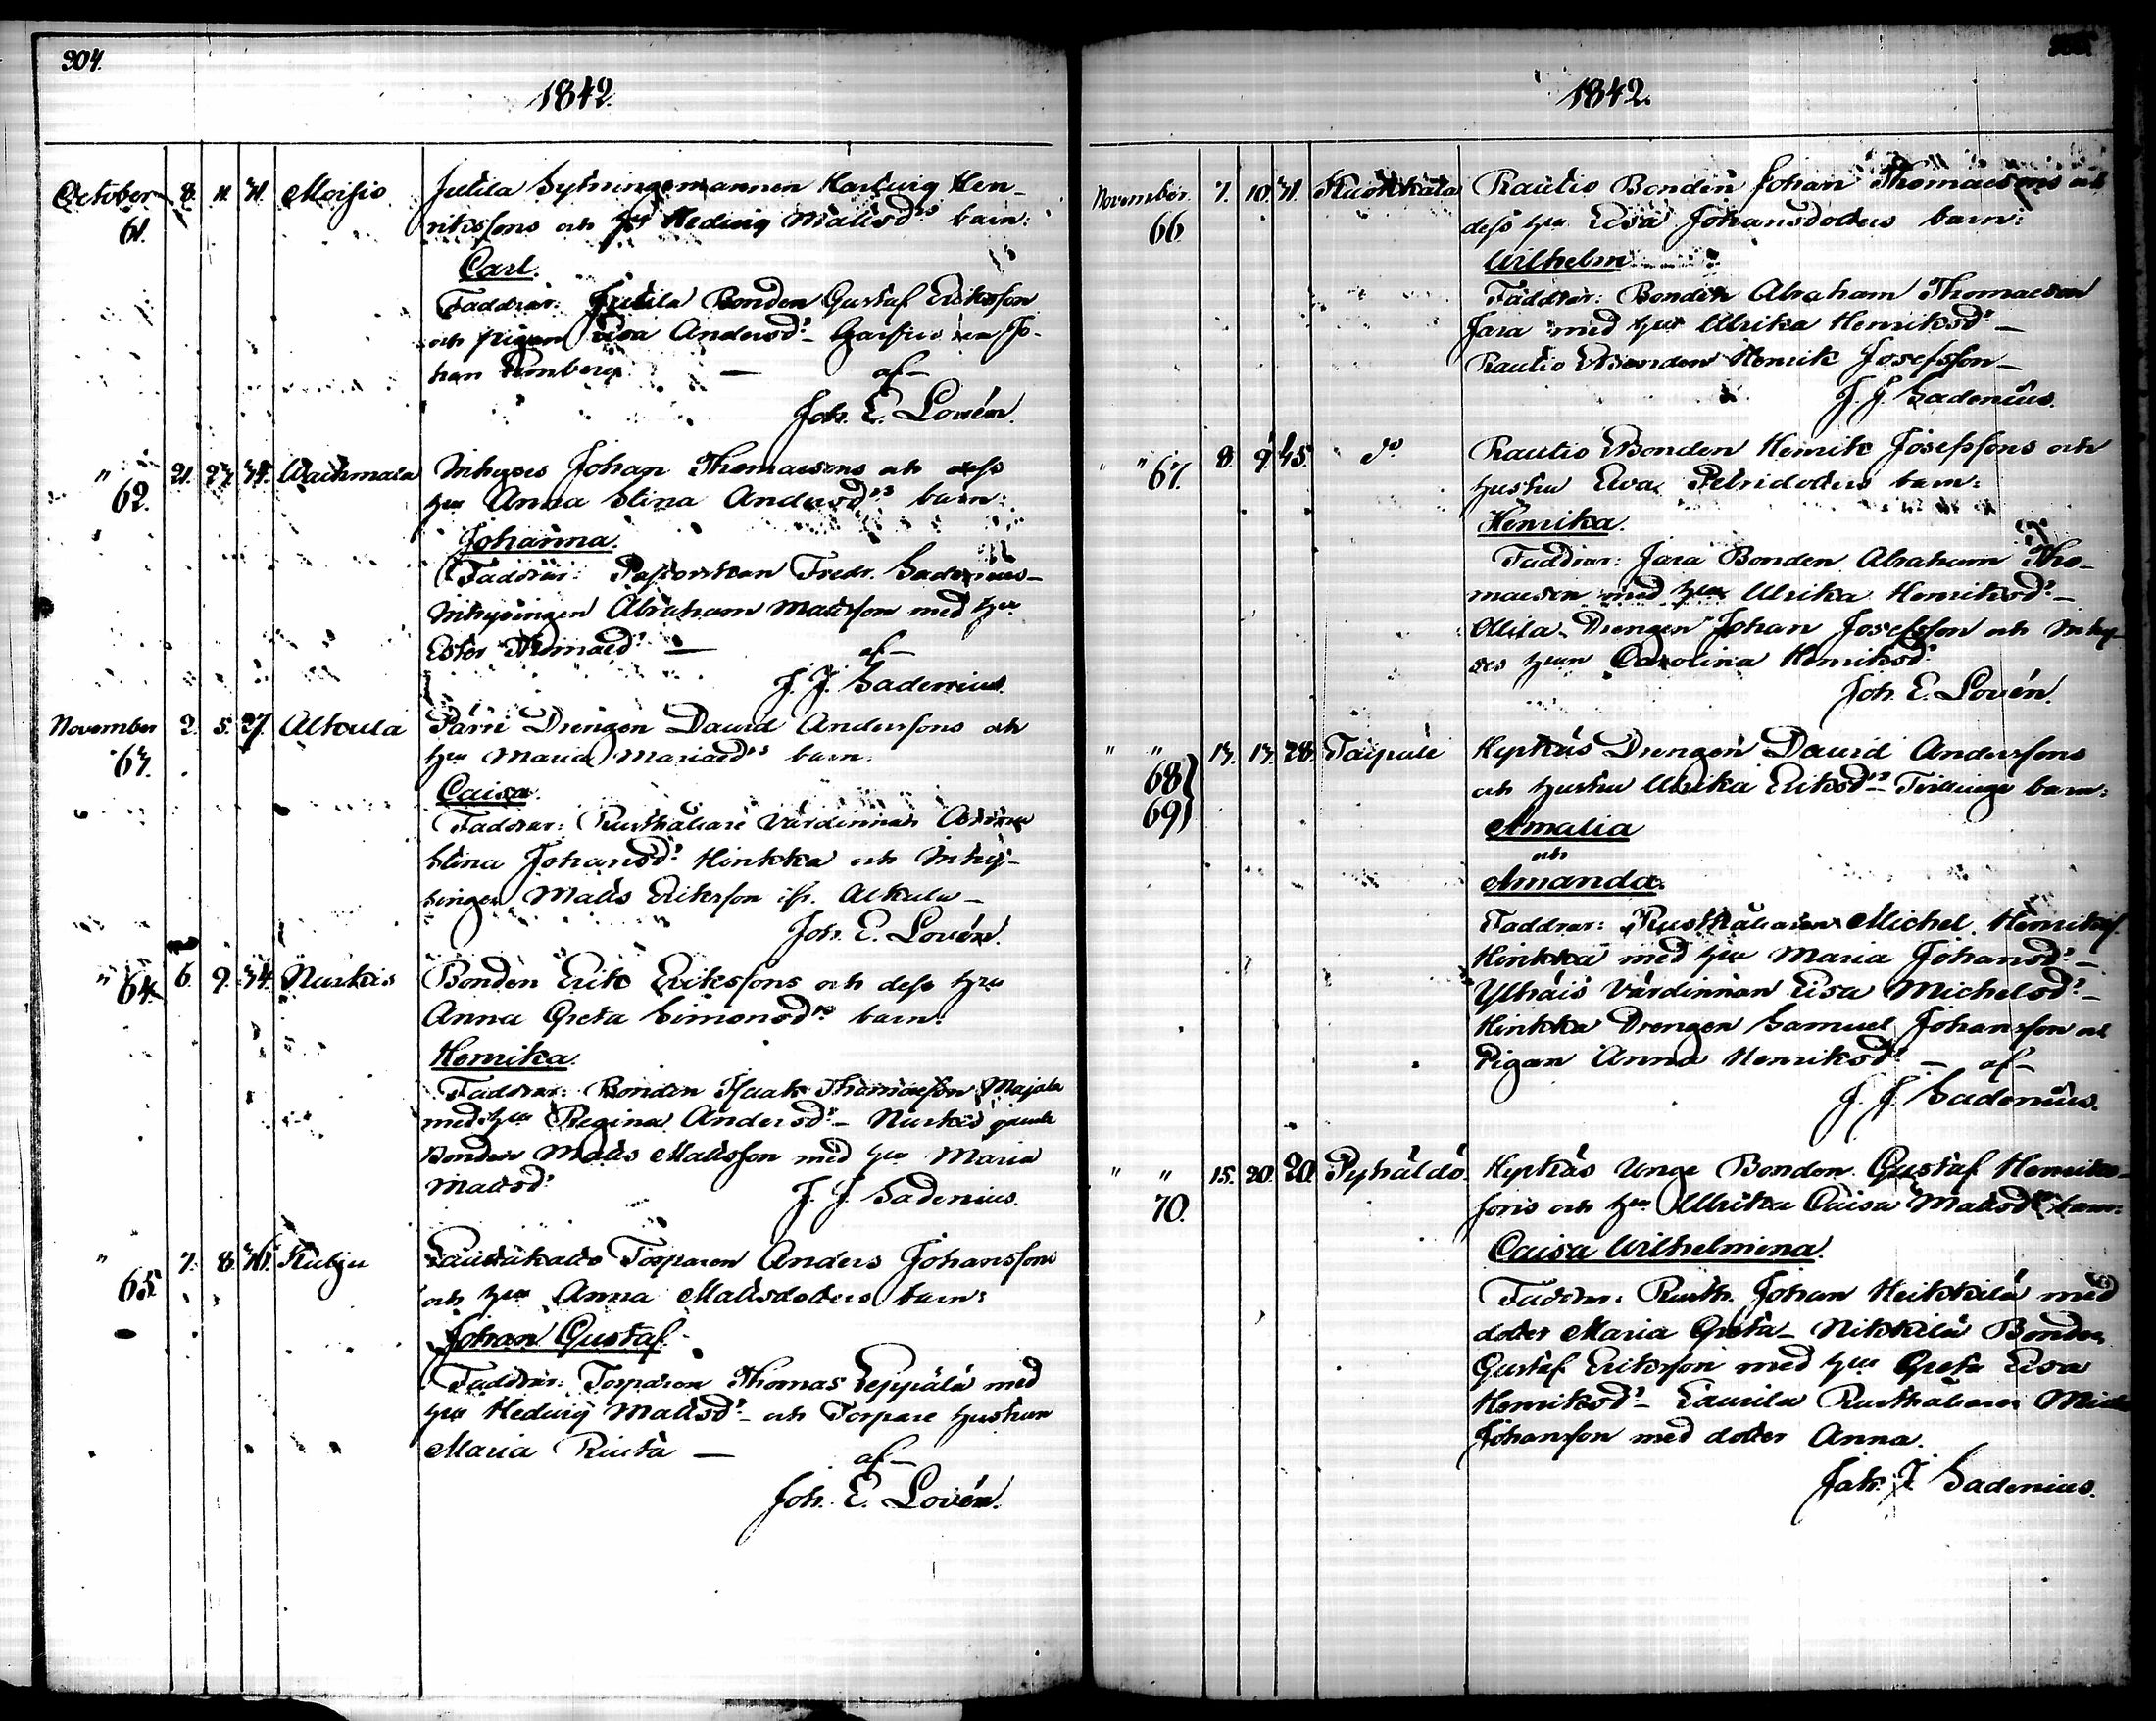 304.
1842.
October 8. 11. 31. Moisio Jutila Sytningsmannen Hartwig Hen-
61. rikssons och hu Hedwig Matsdrs barn:
Carl.
Faddrar: Jutila Bonden Gustaf Eriksson
och pigan Lisa Andersdr
han af
Joh. E. Lovén.
" 21. 23. 34. Inhyses Johan Thomassons och dess
62. hru Anna Stina Andersdrs barn:
Johanna.
Faddrar: Pastorskan Fredr. Sadenius-
Inhysingen Abraham Mattsson med hru
Ester Thomasdr — af-
J. J. Sadenius.
November 2. 5. 27. Alkula Parri Drengen David Anderssons och
63. hru Maria barn:
Caisa.
Faddrar: Rusthållare Värdinnan
Stina Johansdr Hinkka och Inhy-
singen Matts Eriksson ifr. Alkula-
Joh. E. Lovén.
" 6. 9. 34. Nurkis Bonden Erik Erikssons och dess hru
64. Anna Greta Simonsdrs barn:
Henrika.
Faddrar: Bonden Isaak Thomasson Majala
med hru Regina Andersdr- Nurkis gamle
Bonden Matts Mattsson med hru Maria
Mattsdr J. J. Sadenius.
" 7. 8. Kulju Torparen Anders Johanssons
65. och hru Anna Mattsdotters barn:
Johan Gustaf.
Faddrar: Torparen Thomas Leppälä med
hru Hedwig Mattsdr- och Torpare hustrun
Maria — af-
Joh. E. Lovén.
1842.
November. 7. 10. 31. Rautio Bonden Johan Thomassons och
66. dess hru Lisa Johansdotters barn:
Wilhelm
Faddrar: Bonden Abraham Thomasson
Jara med hru Ulrika Henriksdr-
Rautio Bonden Henrik Josefsson-
J. J. Sadenius.
" " 8. 9. 45. do Rautio Bonden Henrik Josefssons och
67. hustru Eva Petridotters barn:
Henrika.
Faddrar: Jara Bonden Abraham Tho-
masson med hru Ulrika Henriksdr-
Ollila Drengen Johan Josefsson och Inhy-
ses hrun Carolina Henriksdr
Joh. E. Lovén.
" " 13. 13. 28. Taipale Hyrkäs Drengen David Anderssons
68 och hustru Ulrika Eriksdrs Tvillinge barn:
69 Amalia
och
Amanda.
Faddrar: Rusthållaren Michel Henrikss.
Hinkka med hru Maria Johansdr-
Värdinnan Lisa Michelsdr-
Hinkka Drengen Samuel Johansson och
Pigan Anna Henriksdr — af-
J. J. Sadenius.
" " 15. 20. 20. Hyrkäs Unge Bonden Gustaf Henriks-
70. sons och hru Ulrika Caisa Mattsdrs barn:
Caisa Wilhelmina.
Faddrar: Rusth. Johan Heikkilä med
dotter Maria Greta- Nikkilä Bonden
Gustaf Eriksson med hru Greta Lisa
Henriksdr- Laurila Rusthållaren
Johansson med dotter Anna.
Joh. J. Sadenius.